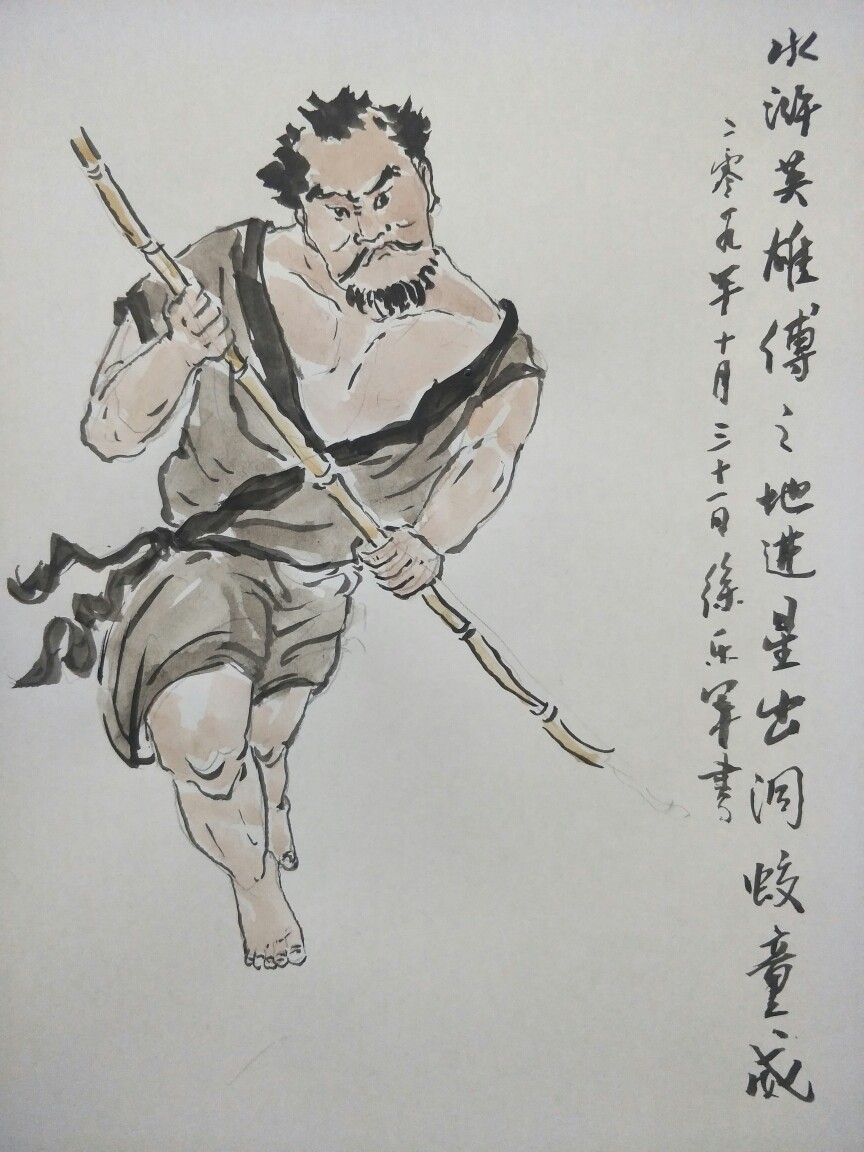 水浒英雄傅之地进星出洞蛟童威
二零一九年十月三十一日徐乐军書